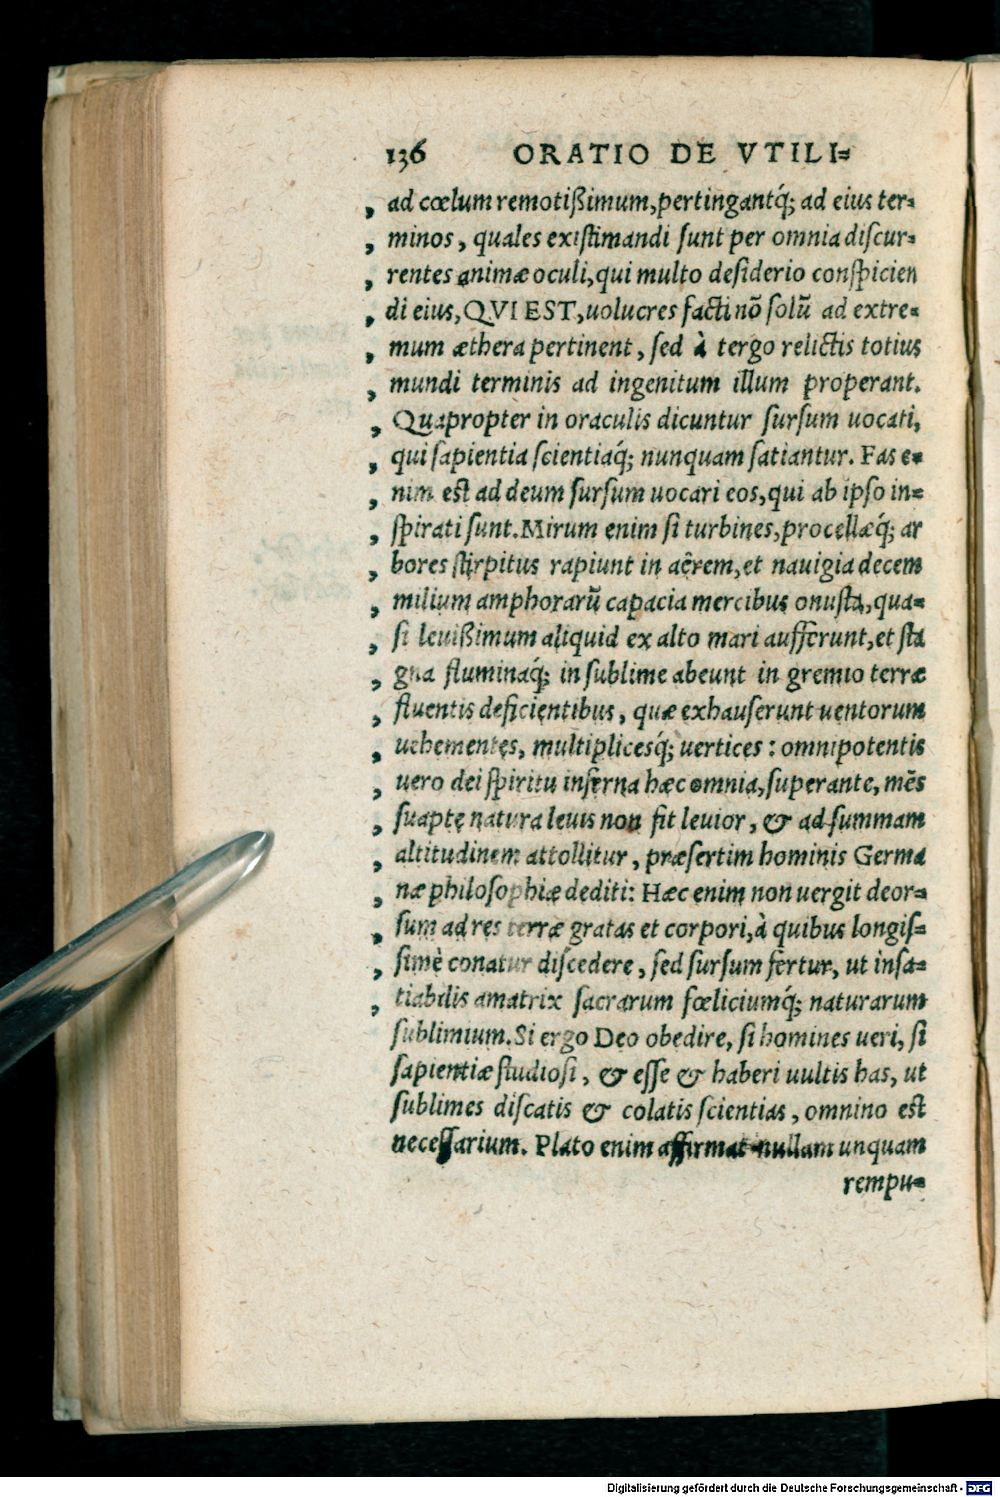 136 ORATIO DE VTILI=
, ad cœlum remotißimum, pertingantq́; ad eius ter=
, minos, quales existimandi sunt per omnia discur=
, rentes animæ oculi, qui multo desiderio conspicien
, di eius, QVI EST, uolucres facti nõ solũ ad extre=
, mum æthera pertinent, sed à tergo relictis totius
, mundi terminis ad ingenitum illum properant.
, Quapropter in oraculis dicuntur sursum uocati,
, qui sapientia scientiaq́; nunquam satiantur. Fas e=
, nim est ad deum sursum uocari eos, qui ab ipso in=
, spirati sunt. Mirum enim si turbines, procellæq́; ar
, bores stirpitus rapiunt in aêrem, et nauigia decem
, milium amphorarũ capacia mercibus onusta, qua=
, si leuißimum aliquid ex alto mari aufferunt, et sta
, gna fluminaq́; in sublime abeunt in gremio terræ
, fluentis deficientibus, quæ exhauserunt uentorum
, uehementes, multiplicesq́; uertices : omnipotentis
, uero dei spiritu inferna hæc omnia, superante, mẽs
, suapte natura leuis non fit leuior, & ad summam
, altitudinem attollitur, præsertim hominis Germa
, næ philosophiæ dediti: Hæc enim non uergit deor=
, sum ad res terræ gratas et corpori, à quibus longis=
, simè conatur discedere, sed sursum fertur, ut insa=
, tiabilis amatrix sacrarum fœliciumq́; naturarum
sublimium. Si ergo Deo obedire, si homines ueri, si
sapientiæ studiosi, & esse & haberi uultis has, ut
sublimes discatis & colatis scientias, omnino est
necessarium. Plato enim affirmat nullam unquam
rempu=
Digitalisierung gefördert durch die Deutsche Forschungsgemeinschaft - DFG